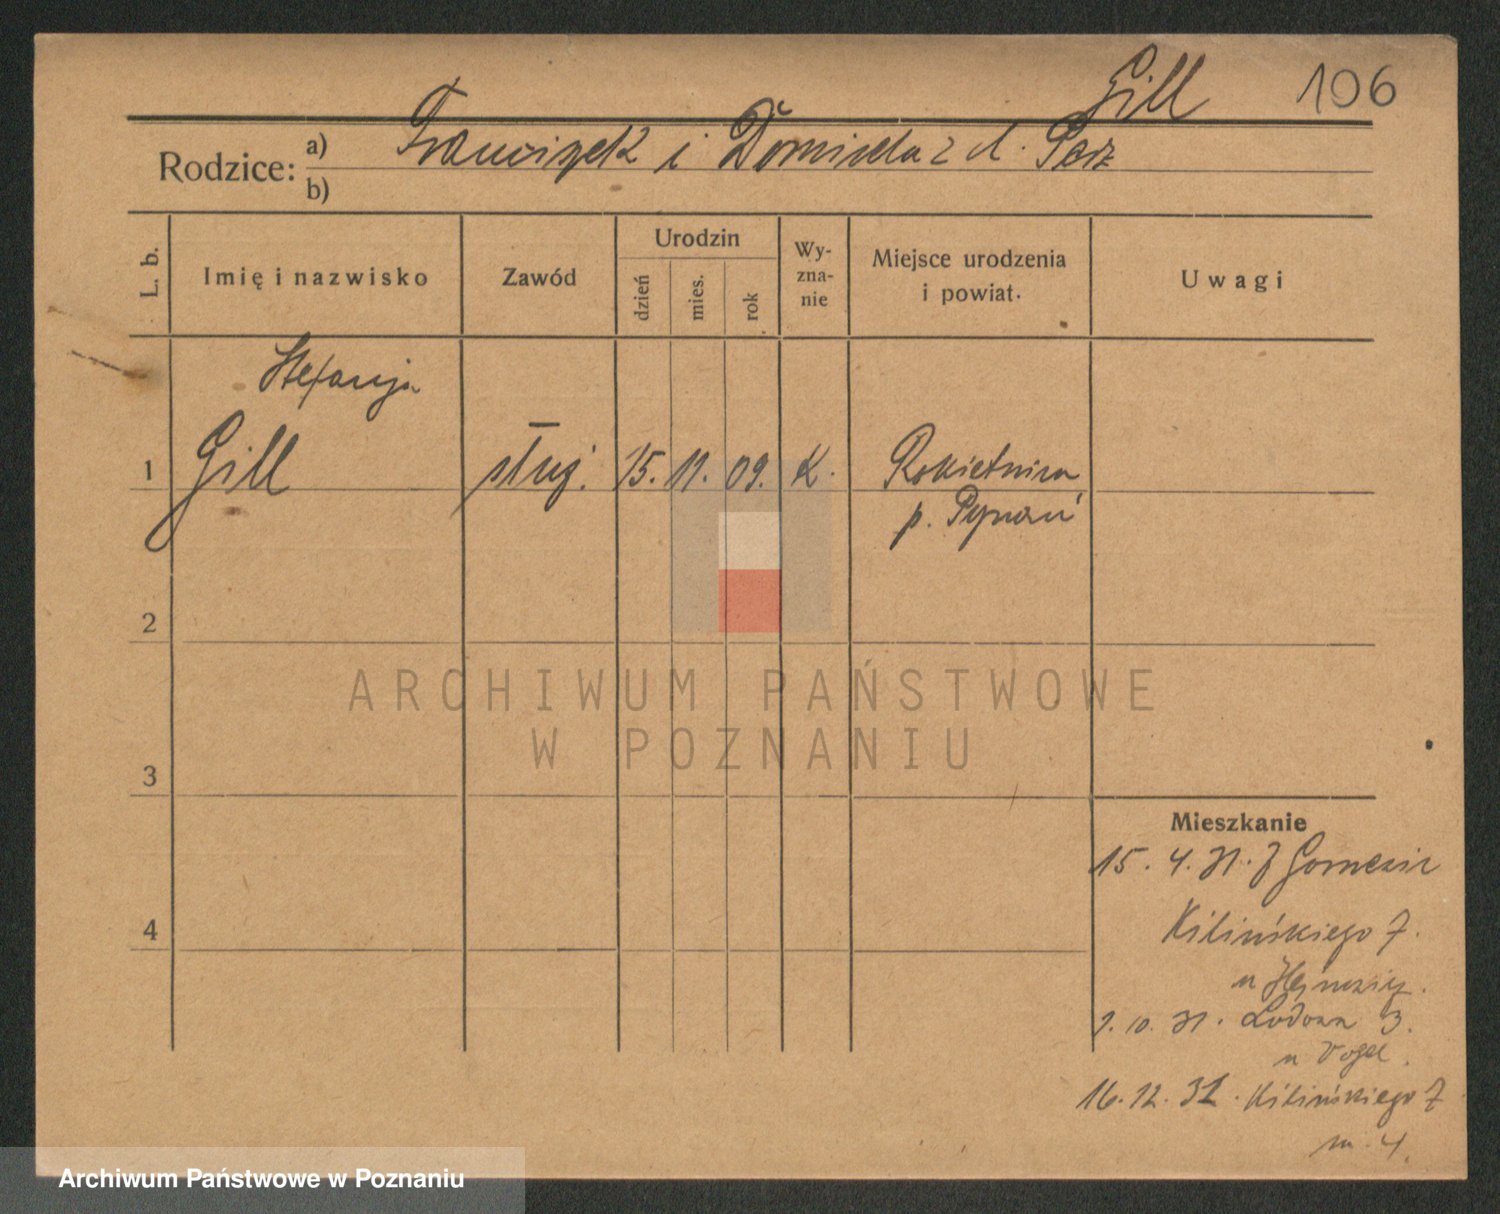 Gill 106
Franciszek i Domicela z d. Perz
Rodzice: a)
b)
L. b. Imię i nazwisko Zawód Urodzin dzień mies. rok Wy-znanie Miejsce urodzenia i powiat. Uwagi
Stefanja
1 Gill służ. 15. 11. 09. K. Rokietnica
p. Poznań
2
ARCHIWUM PAŃSTWOWE
W POZNANIU
3
Mieszkanie
15. 4. 31. z
4
Kilińskiego 7.
u
10. 31. 3.
u Vogel.
16. 12. 31. Kilińskiego 7
m. 4.
Archiwum Państwowe w Poznaniu